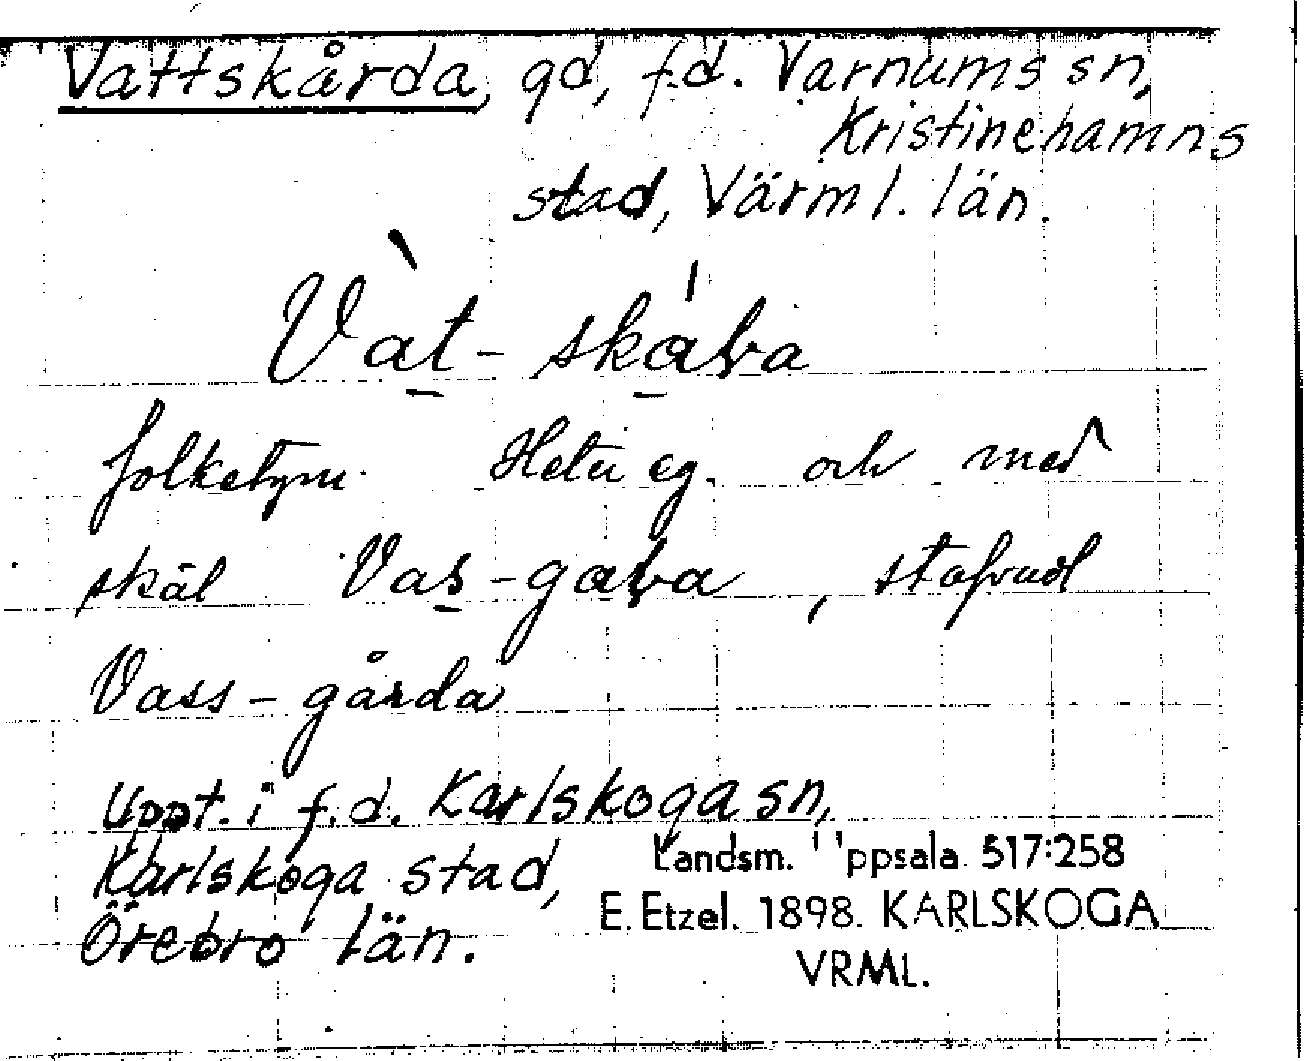 Vattskårda, gd, f.d. Varnums sn,
Kristinehamns
stad, Värml. län.
Vàt-skába
folketym. Heter eg. och med
skäl Vas-gaba, stafvadt
Vass-gårda
Uppt. i f.d. Karlskoga sn,
Karlskoga stad,
Örebro län.
Landsm. Uppsala 517:258
E. Etzel. 1898. KARLSKOGA
VRML.